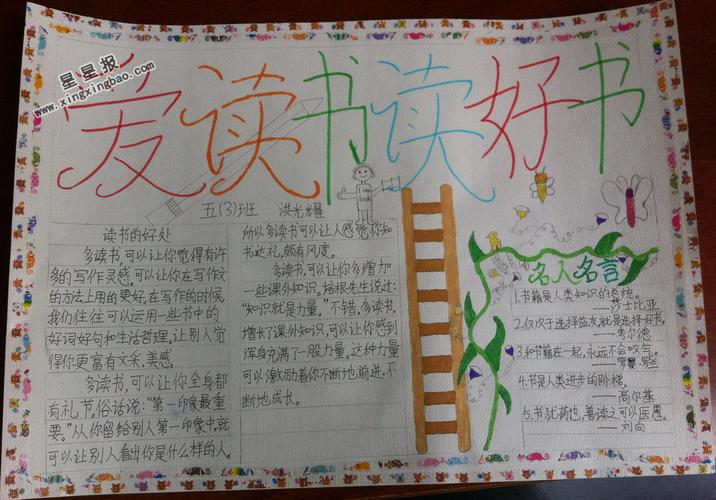 星星报
www.xingxingbao.com
爱读书读好书
五(3)班 洪光耀
读书的好处
多读书,可以让你觉得有许
多的写作灵感,可以让你在写作文
的方法上用的更好。在写作的时候,
我们往往可以运用一些书中的
好词好句和生活哲理,让别人觉
得你更富有文采、美感。
多读书,可以让你全身都
有礼节。俗话说:“第一印象最重
要。”从你留给别人第一印象中,就
可以让别人看出你是什么样的人。
所以多读书可以让人感觉你知
书达礼,颇有风度。
多读书,可以让你多增加
一些课外知识,培根先生说过:
“知识就是力量。”不错,多读书,
增长了课外知识,可以让你感到
浑身充满了一股力量,这种力量
可以激励着你不断地前进,不
断地成长。
名人名言
1.书籍是人类知识的总统。
——莎士比亚
2.仅次于选择益友,就是选择好书。
——考尔德
3.和书籍在一起,永远不会叹气。
——罗曼·罗兰
4.书是人类进步的阶梯。
——高尔基
5.书犹药也,善读之可以医愚。
——刘向